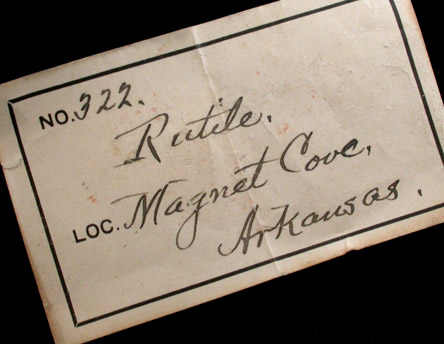 NO. 322.
Rutile.
LOC. Magnet Cove,
Arkansas.